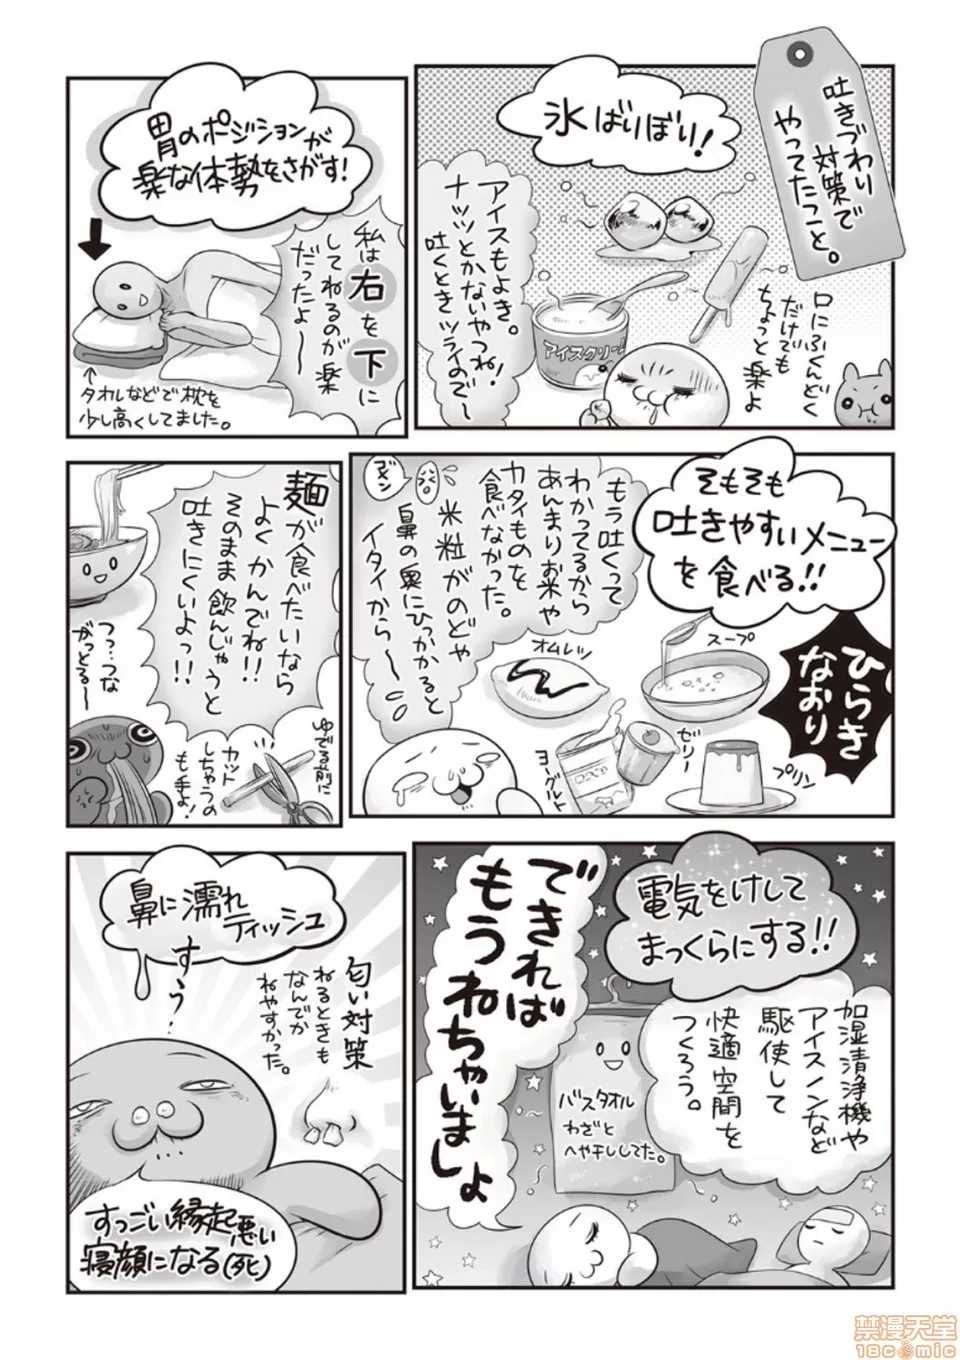 吐きづわり
対策で
やってたこと。
氷ばりぼり!
口にふくんどく
だけでも
ちょっと楽よ
アイスもよき。
ナッツとかないやつね!
吐くときツライので〜
アイスクリーム
胃のポジションが
楽な体勢をさがす!
私は右を下に
してねるのが楽
だったよ〜
↑
タオルなどで枕を
少し高くしてました。
そもそも
吐きやすいメニュー
を食べる!!
ひらき
なおり
もう吐くって
わかってるから
あんまりお米や
カタイものを
食べなかった。
米粒がのどや
鼻の奥にひっかかると
イタイから〜
ゴメン
スープ
オムレツ
ゼリー
ヨーグルト
プリン
麺が食べたいなら
よくかんでね!!
そのまま飲んじゃうと
吐きにくいよっ!!
つ…つな
がっとる〜
ゆでる前に
カット
しちゃうの
も手よ!
電気をけして
まっくらにする!!
加湿清浄機や
アイスノンなど
駆使して
快適空間を
つくろう。
できれば
もうねちゃいましょ
バスタオル
わざと
へや干ししてた。
鼻に濡れ
ティッシュ
すぅぅ
匂い対策
ねるときも
なんでか
ねやすかった。
すっごい縁起悪い
寝顔になる(死)
禁漫天堂
18comic